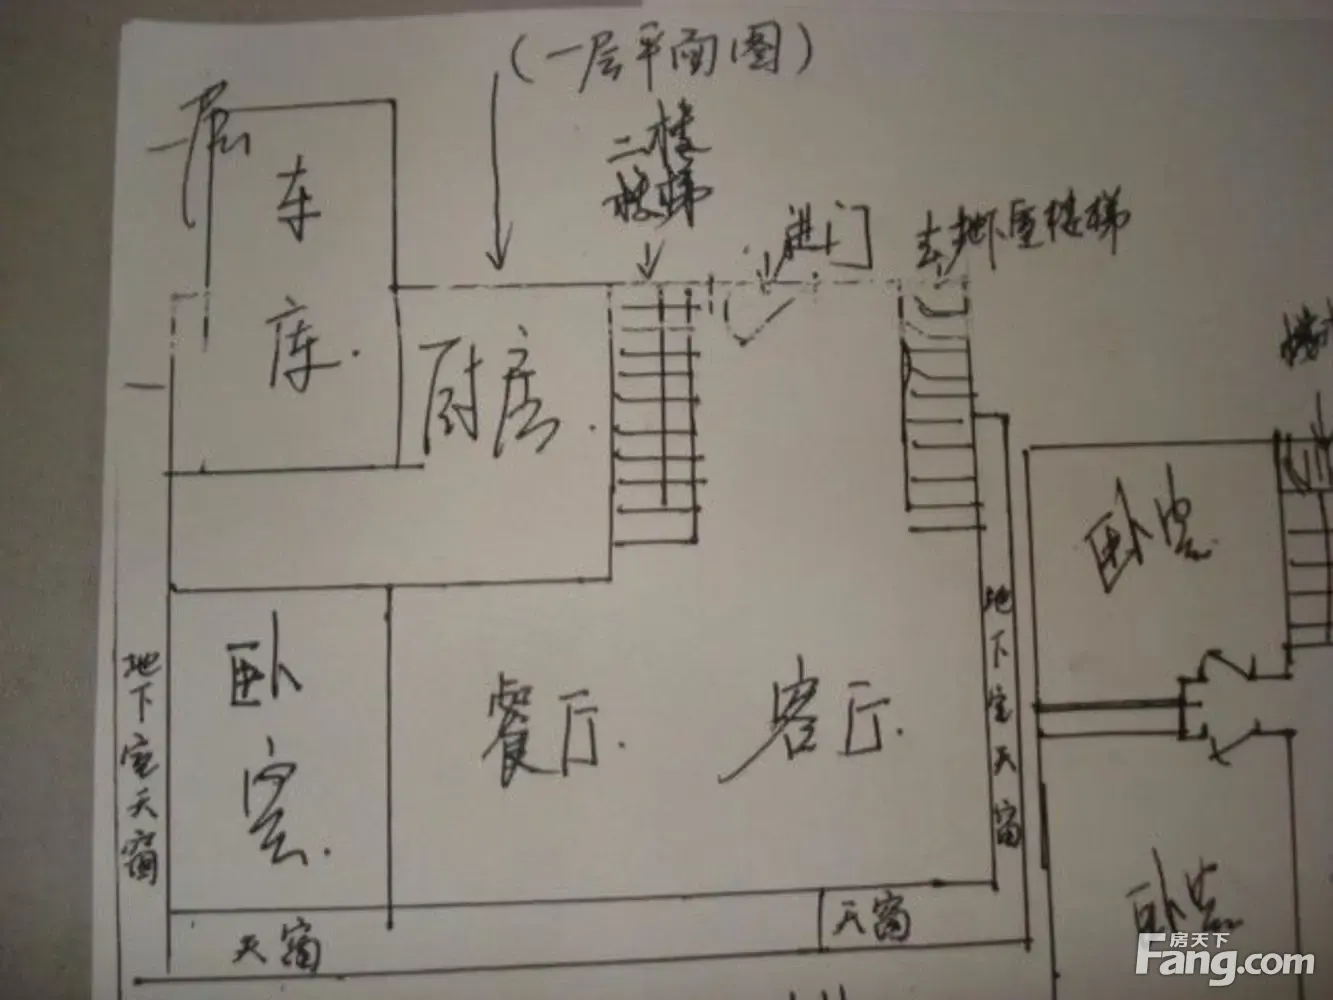 (一层平面图)
一层
二楼
楼梯
进门
去地下室楼梯
车
库
厨房
卧室
卧
室
餐厅
客厅
地下室天窗
地下室天窗
卧室
天窗
天窗
房天下
Fang.com